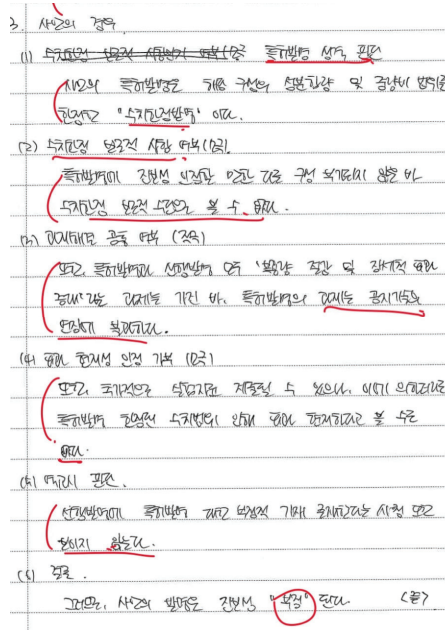 3. 사안의 경우
(1) 특허발명 성격 판단
사안의 특허발명은 해당 구성의 성분함량 및 중량비 범위를
한정한 "수치한정발명" 이다.
(2) 수치한정 보충적 사항 여부(소극).
특허발명에 진보성 인정할 만한 다른 구성 부가되지 않은 바
수치한정 보충적 수단으로 볼 수 없다.
(3) 과제해결 공통 여부 (적극)
또한, 특허발명과 선행발명 모두 '복용량 절감 및 효과
증대'라는 과제를 가진 바, 특허발명의 과제는 공지기술의
연장에 불과하다.
(4) 효과 현저성 인정 가부 (소극)
또한, 추가적으로 실험자료 제출될 수 있으나, 이에 의하더라도
특허발명 한정된 수치범위 안에 효과 현저하다고 볼 수도
없다.
(5) 역교시 판단.
선행발명에 특허발명 대한 부정적 기재 존재한다는 사정 또한
보이지 않는다.
(6) 결론.
그러므로, 사안의 발명은 진보성 "부정" 된다. <끝>